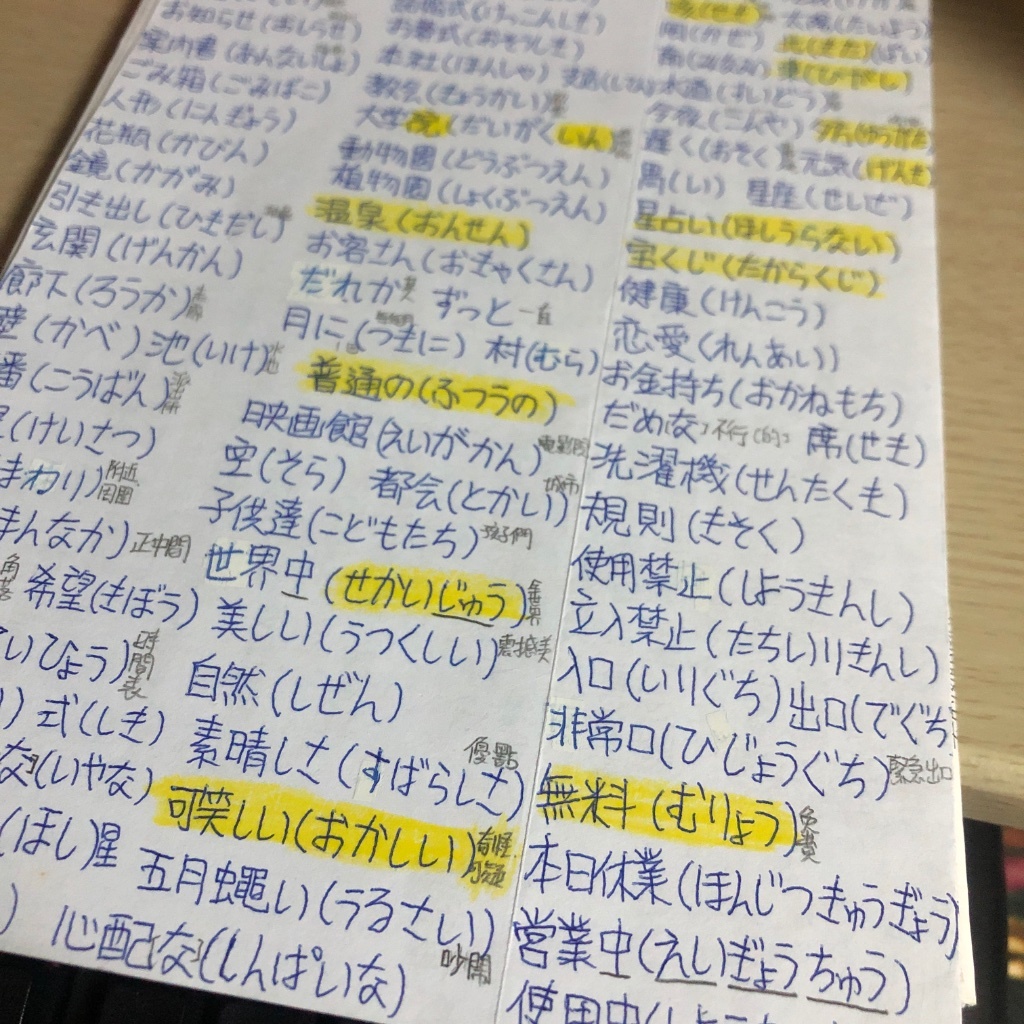 お知らせ(おしらせ)
案内書(あんないしょ)
ごみ箱(ごみばこ)
人形(にんぎょう)
花瓶(かびん)
鏡(かがみ)
引き出し(ひきだし)
玄関(げんかん)
廊下(ろうか)
壁(かべ) 池(いけ)
番(こうばん)
(けいさつ)
まわり) 附近 周圍
まんなか) 正中間
希望(きぼう)
いひょう) 時間表
式(しき)
な(いやな)
(ほし)星
心配な(しんぱいな)
お葬式(おそうしき)
本社(ほんしゃ)
教久(きょうかい)
大学院(だいがくいん)
動物園(どうぶつえん)
植物園(しょくぶつえん)
温泉(おんせん)
お客さん(おきゃくさん)
だれか ずっと 一直
月に(つきに) 村(むら)
普通の(ふつうの)
映画館(えいがかん) 電影院
空(そら) 都会(とかい) 城市
子供達(こどもたち) 孩子們
世界中(せかいじゅう) 全世界
美しい(うつくしい) 震撼美
自然(しぜん)
素晴しさ(すばらしさ) 優點
可笑しい(おかしい) 奇怪 可疑
五月蠅い(うるさい) 吵鬧
北(きた)
東(ひがし)
水道(すいどう)
今夜(こんや)
遅く(おそく) 元気(げんき)
馬(い) 星座(せいざ)
星占い(ほしうらない)
宝くじ(たからくじ)
健康(けんこう)
恋愛(れんあい)
お金持ち(おかねもち)
だめな 不行(的) 席(せき)
洗濯機(せんたくき)
規則(きそく)
使用禁止(しようきんし)
立入禁止(たちいりきんし)
入口(いりぐち) 出口(でぐち
非常口(ひじょうぐち) 緊急出口
無料(むりょう) 免費
本日休業(ほんじつきゅうぎょう)
営業中(えいぎょうちゅう)
使用中(しよ